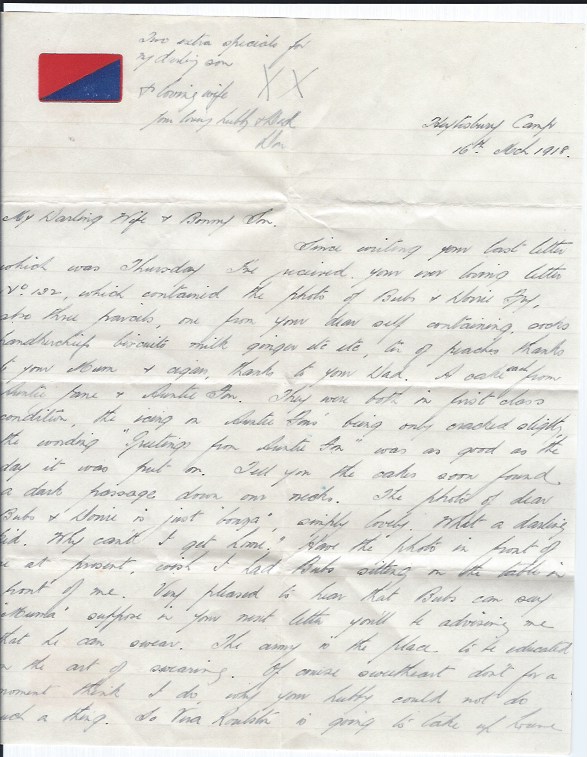 Two extra specials for
my darling son
& loving wife X X
your loving hubby & Dad
Don
Heytesbury Camp
16th Mch 1918.
My Darling Wife & Bonny Son.
Since writing your last letter
which was Thursday I've received your ever loving letter
No 132, which contained the photo of Bubs & Dorrie
also three parcels, one from your dear self containing, socks
handkerchiefs biscuits milk ginger etc etc, tin of peaches thanks
to your Mum & cigars, thanks to your Dad. A cake each from
Auntie Jane & Auntie They were both in first class
condition, the icing on Auntie being only cracked slightly
the wording "Greetings from Auntie was as good as the
day it was put on. Tell you the cakes soon found
a dark passage down our necks. The photo of dear
Bubs & Dorrie is just "bonza", simply lovely. What a darling
kid. Why can't I get home," Have the photo in front of
me at present, wish I had Bubs sitting on the table in
front of me. Very pleased to hear that Bubs can say
"Mumma" suppose in your next letter you'll be advising me
that he can swear. The army is the place to be educated
in the art of swearing. Of course sweetheart don't for a
moment think I do, why your hubby could not do
such a thing. So Vera is going to take up